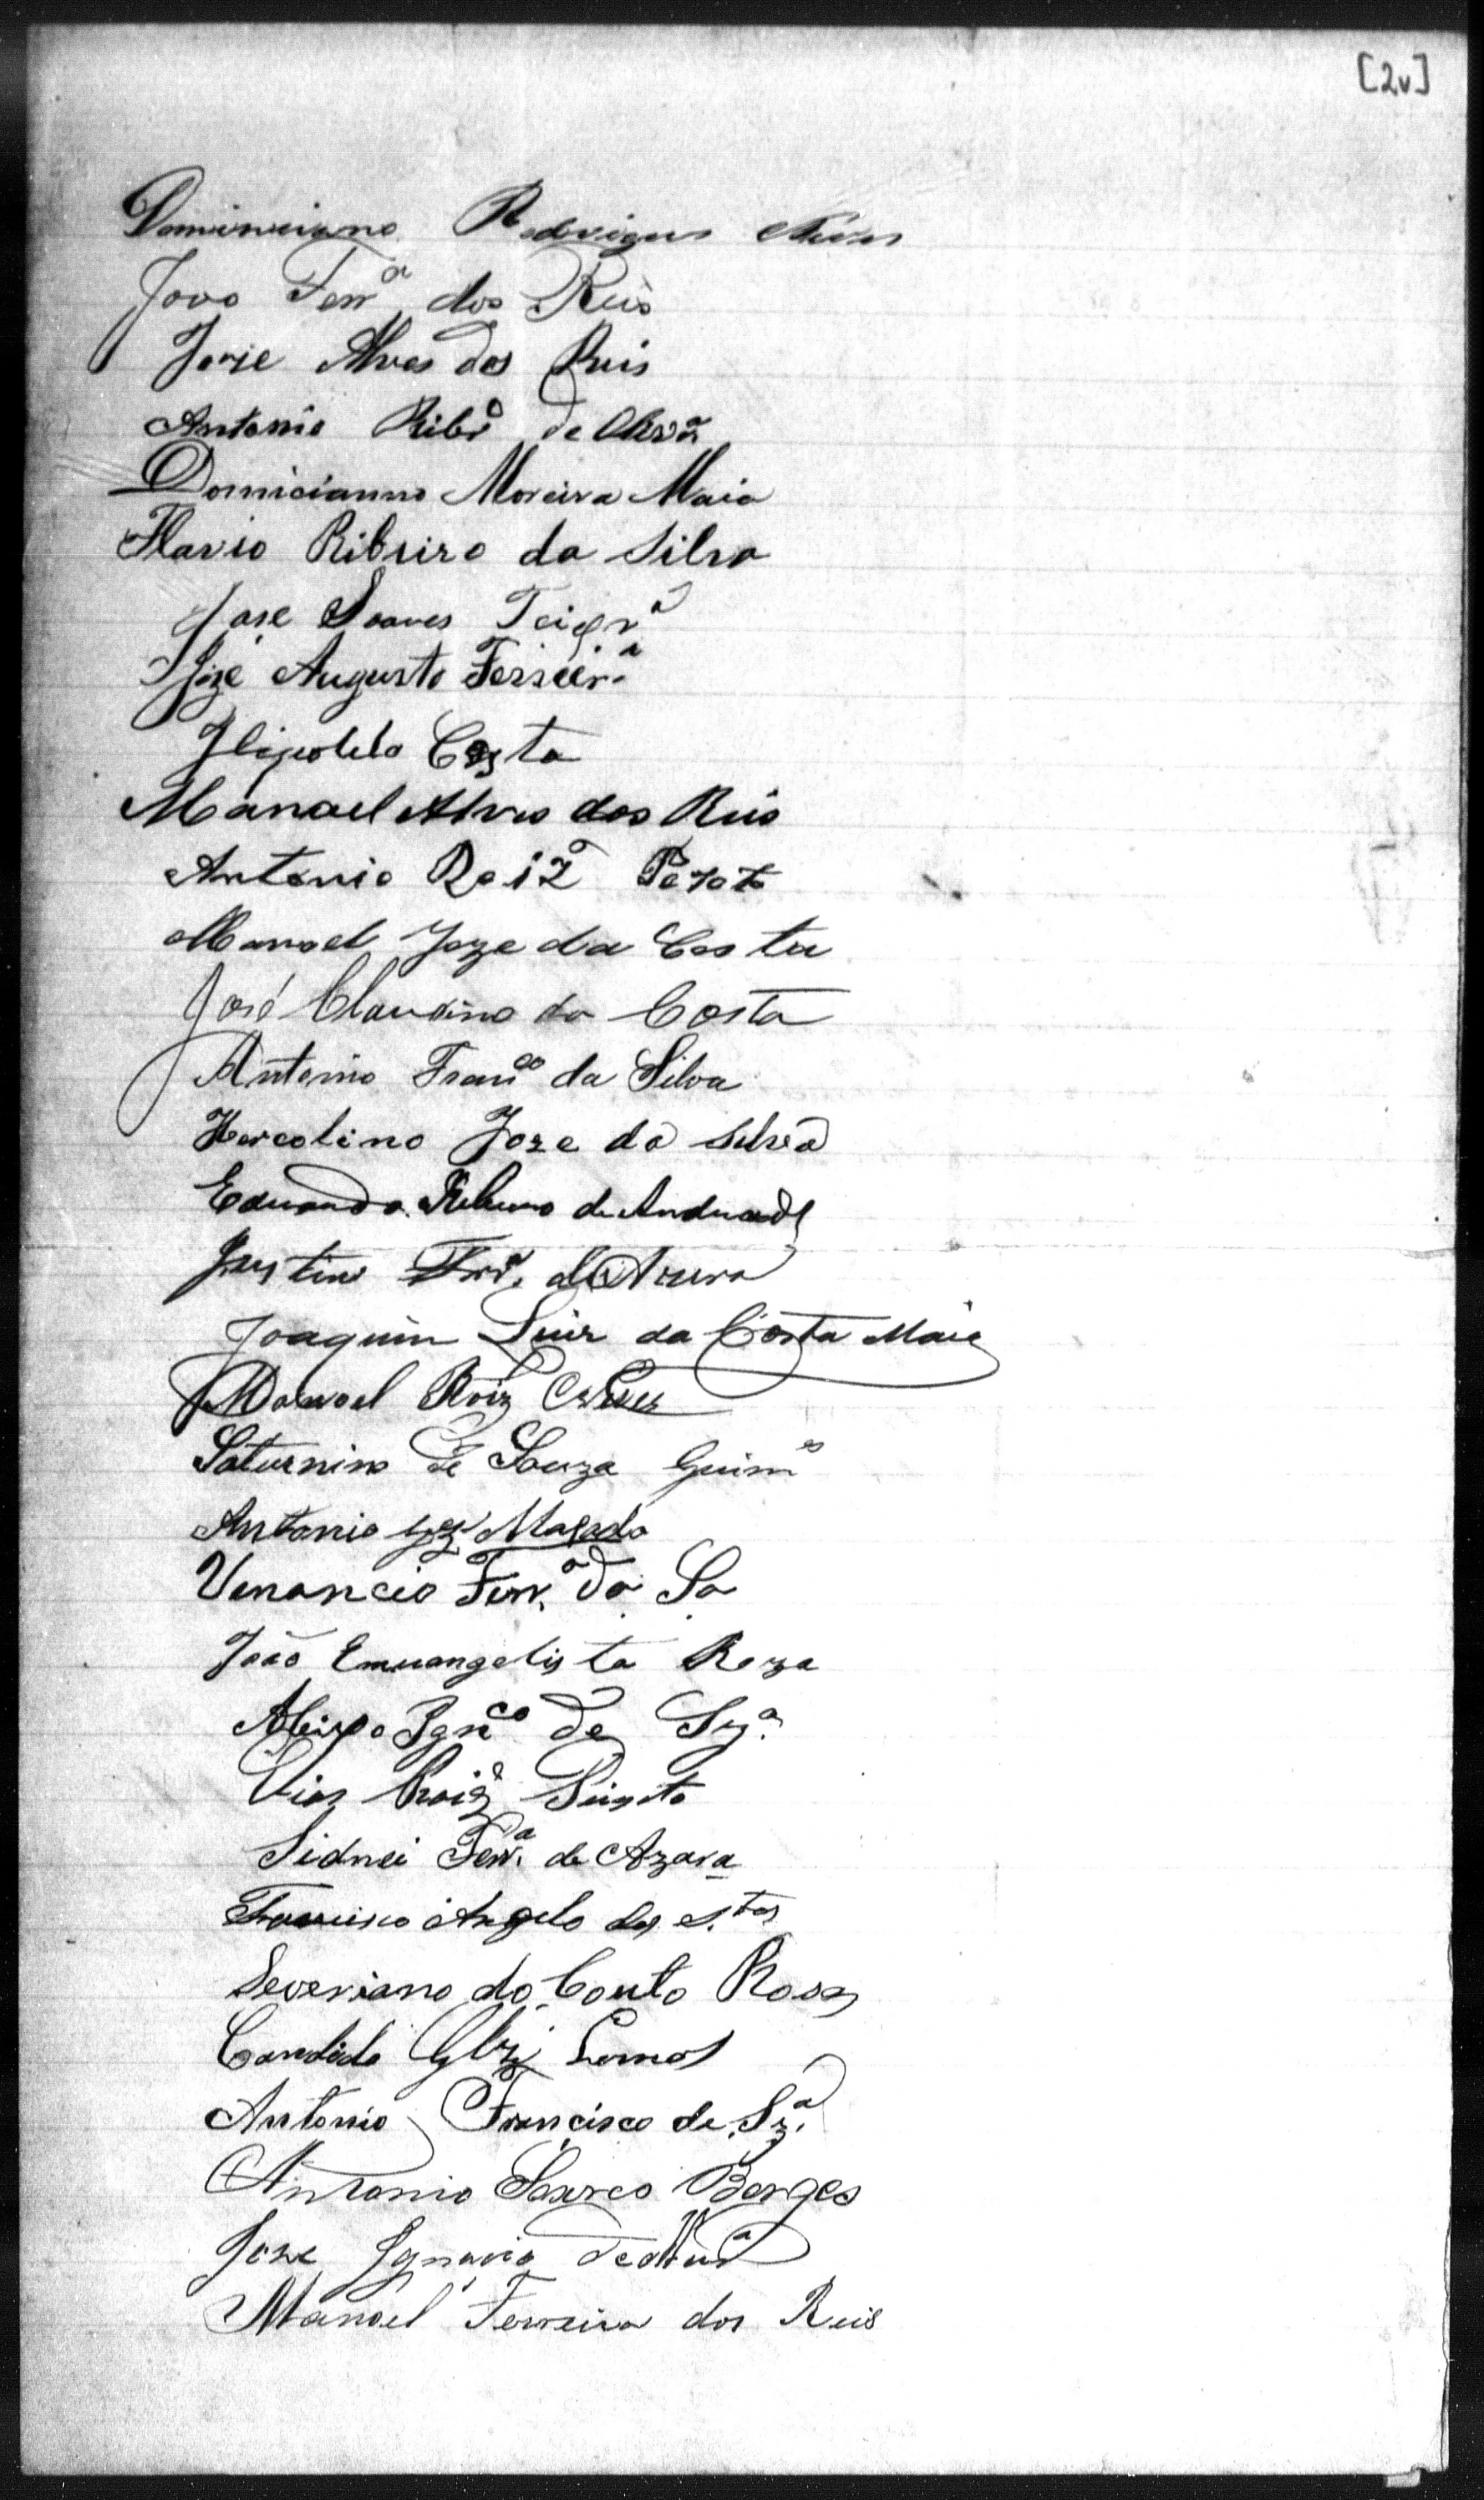 [2v]
Rodrigues
João Ferrª dos Reis
Joze Alves dos Reis
Antonio Ribrº de Olivrª
Domicianno Moreira Maia
Flavio Ribeiro da Silva
Jose Soares Teixrª
José Augusto Ferreirª
Costa
Manoel Alves dos Reis
Antonio Roiz
Manoel Joze da Costa
José Claudino da Costa
Antonio Franco da Silva
Hercolino Joze da Silva
Eduardo Ribeiro de Andrade
Joaquim Luiz da Costa Maia
Manoel Roiz
Saturnino de Souza Guimes
Antonio
Venancio Ferr.ª da
João Emuangelista Roza
Igncº de
Roiz
Sidnei Ferr.ª de Azara
Francisco Angelo dos S.tos
Severiano do Couto Rosa
Candido Lemos
Antonio Francisco de Sz.ª
Antonio Borges
Jose Ignacio
Manoel Ferreira dos Reis